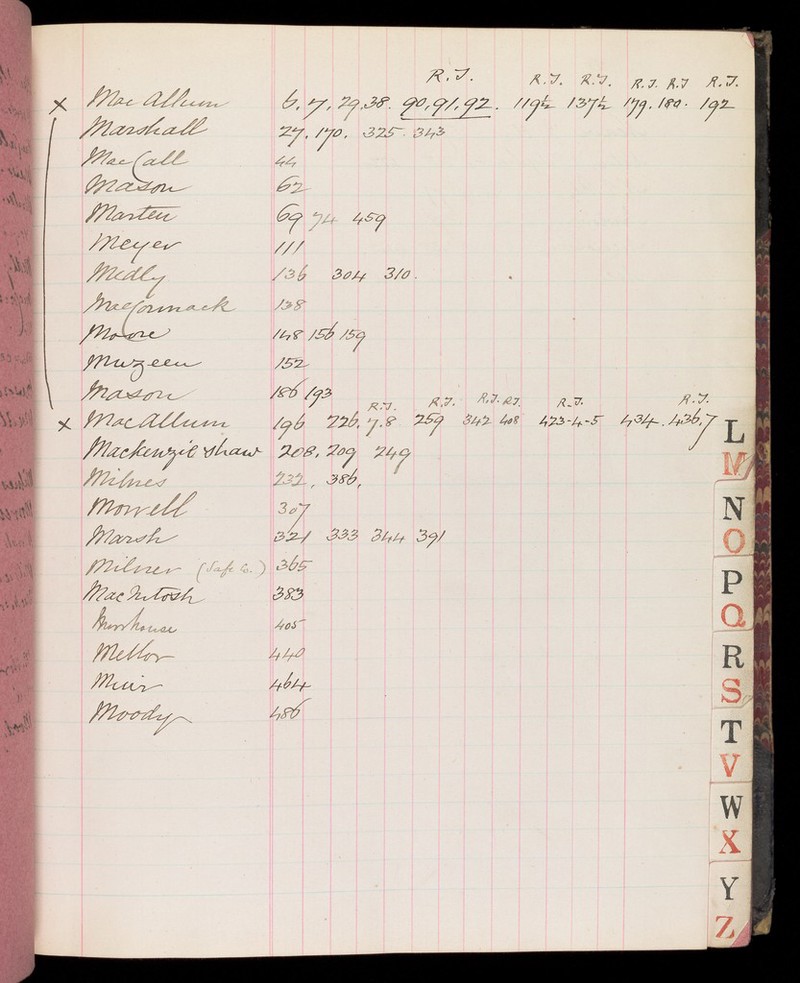 R.J. R.J. R.J. R.J. R.J R.J.
x MacAllum 6. 7. 29. 38. 90. 91. 92. 119½ 137½ 179. 180. 192
Marshall 27. 170. 325. 343
MacCall 44
Mason 62
Marten 69 74 459
Meyer 111
Medly 136 304 310.
MacCormack 138
Moore 148 156 159
Muzeen 152
Mason 186 193
R.J. R.J. R.J. R.J. R.J. R.J.
x MacAllum 196 226. 7. 8 259 342 408 423-4-5 434. 436. 7
Mackenzie Shaw 208. 209 249
Milnes 232. 386.
Morrell 307
Marsh 321 333 344 391
Milner (Safe Co.) 365
MacIntosh 383
405
Mellor 440
Muir 464
Moody 486
L
M
N
O
P
Q
R
S
T
V
W
X
Y
Z